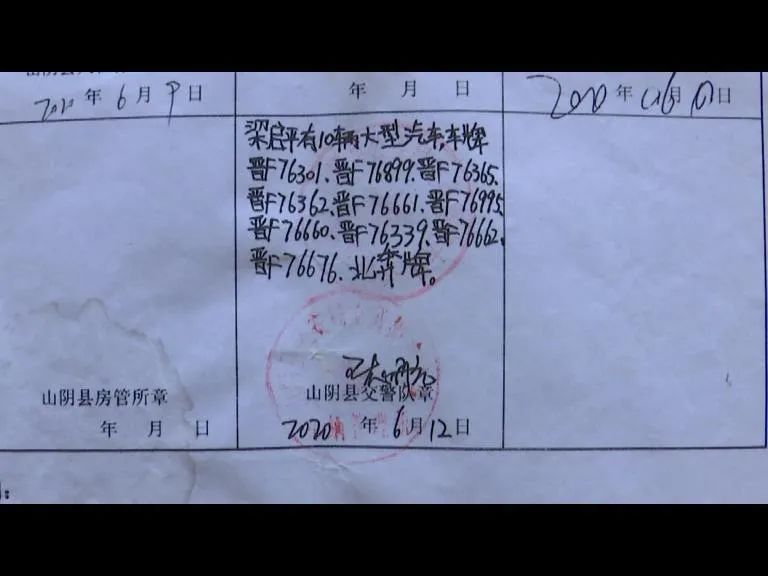 2020年6月9日
年 月 日
2020年6月10日
梁启平有10辆大型汽车,车牌
晋F76301、晋F76899、晋F76365、
晋F76362、晋F76661、晋F76995、
晋F76660、晋F76339、晋F76662、
晋F76676、北奔牌。
山阴县房管所章
年 月 日
山阴县交警队章
2020年6月12日